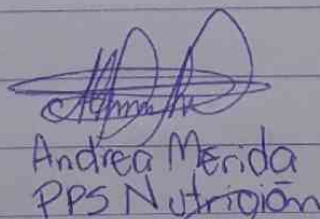 Andrea Merida
PPS Nutrición